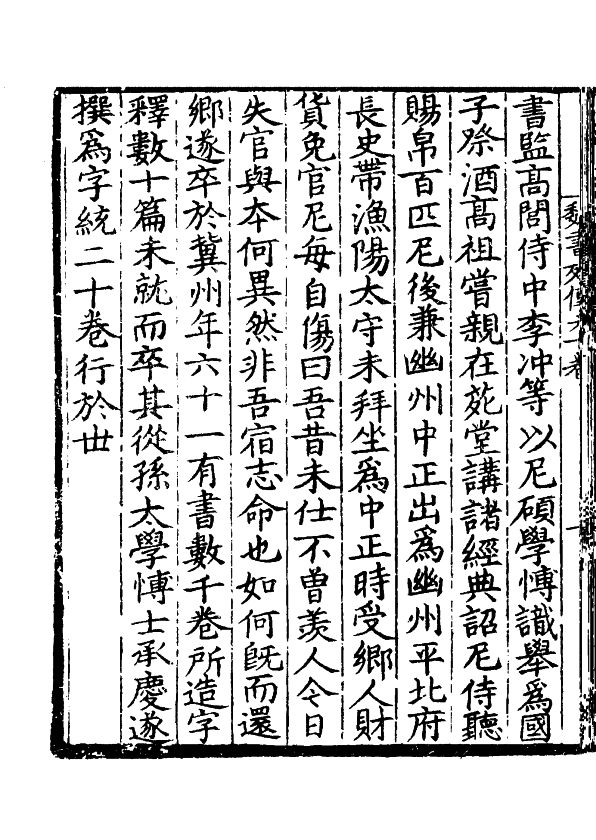 魏書列傳九十卷
書監高閭侍中李冲等以尼碩學博識舉爲國
子祭酒高祖嘗親在苑堂講諸經典詔尼侍聽
賜帛百匹尼後兼幽州中正出爲幽州平北府
長史帶漁陽太守未拜坐爲中正時受鄉人財
貨免官尼每自傷曰吾昔未仕不曽羨人今日
失官與本何異然非吾宿志命也如何旣而還
鄉遂卒於冀州年六十一有書數千卷所造字
釋數十篇未就而卒其從孫太學博士承慶遂
撰爲字統二十卷行於丗